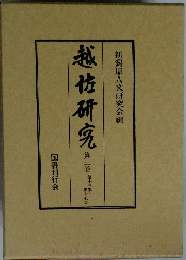 新潟県人文研究会編
越佐研究
国書刊行会